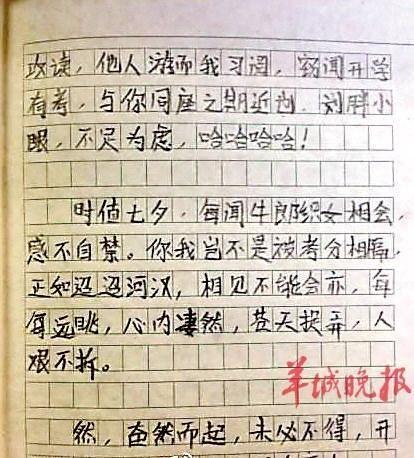 攻读，他人游而我习阅，窃闻开学
有考，与你同座之期近，刘胖小
眼，不足为虑，哈哈哈哈！
时值七夕，每闻牛郎织女相会，
感不自禁。你我岂不是被考分相隔，
正如迢迢河汉，相见不能会亦，每
每远眺，心内凄然，苍天捉弄，人
艰不拆。
羊城晚报
然，奋然而起，未必不得，开